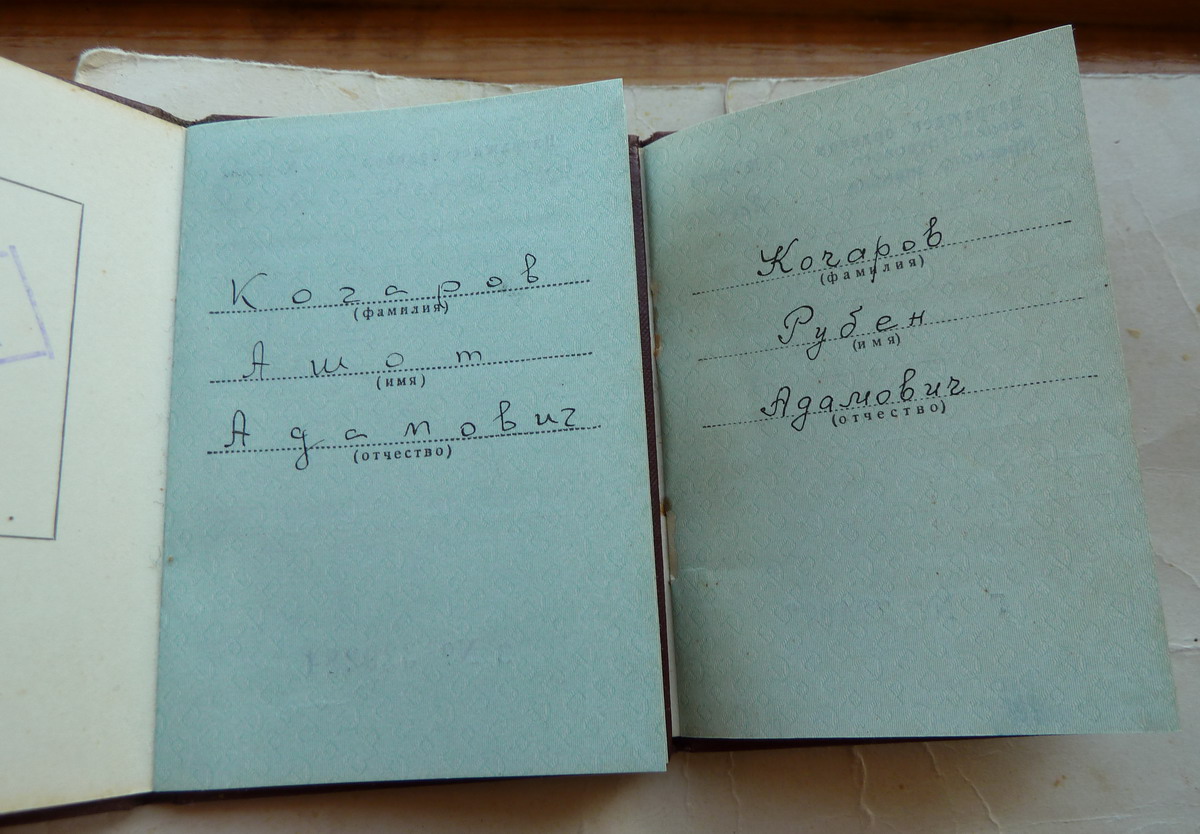 Кочаров
(фамилия)
Ашот
(имя)
Адамович
(отчество)
Кочаров
(фамилия)
Рубен
(имя)
Адамович
(отчество)